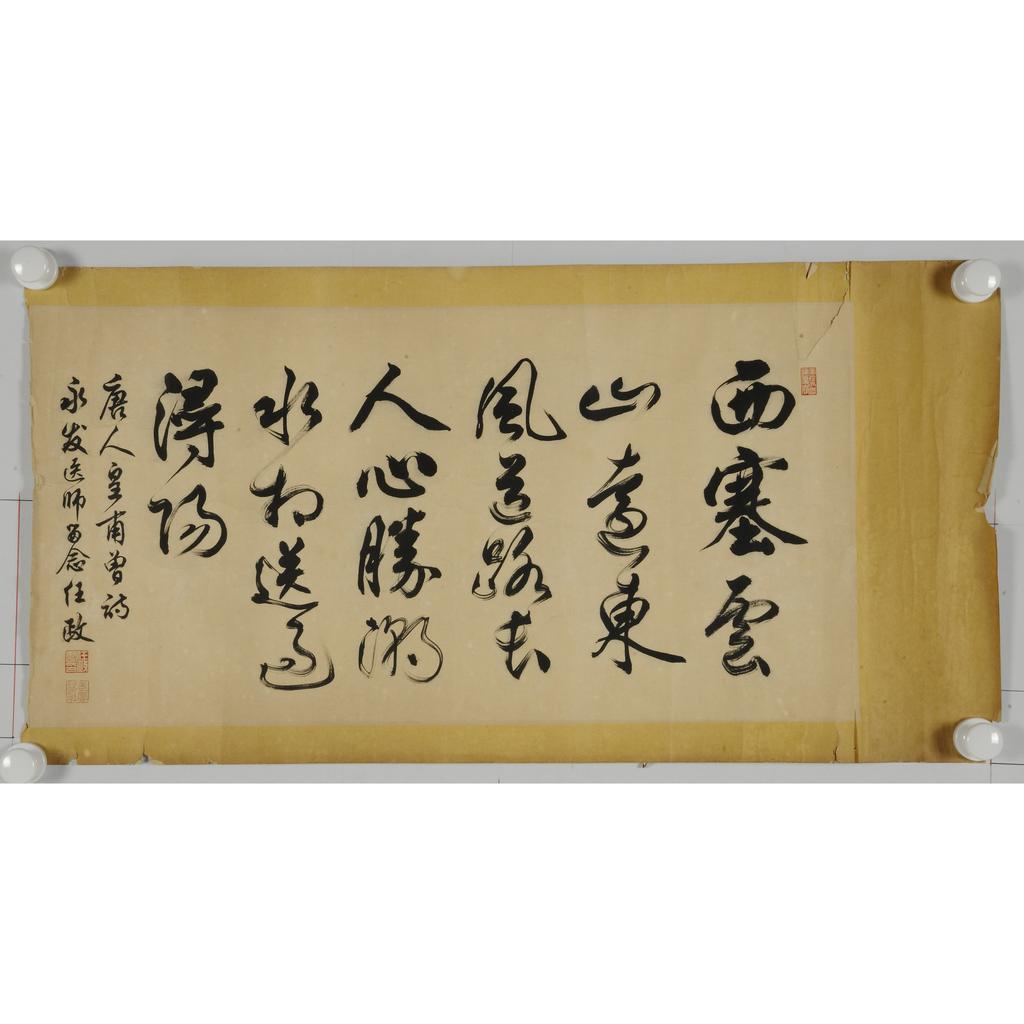 西塞雲
山遠東
風道路長
人心勝潮
水相送過
潯陽
唐人皇甫曾詩
永发医师留念任政